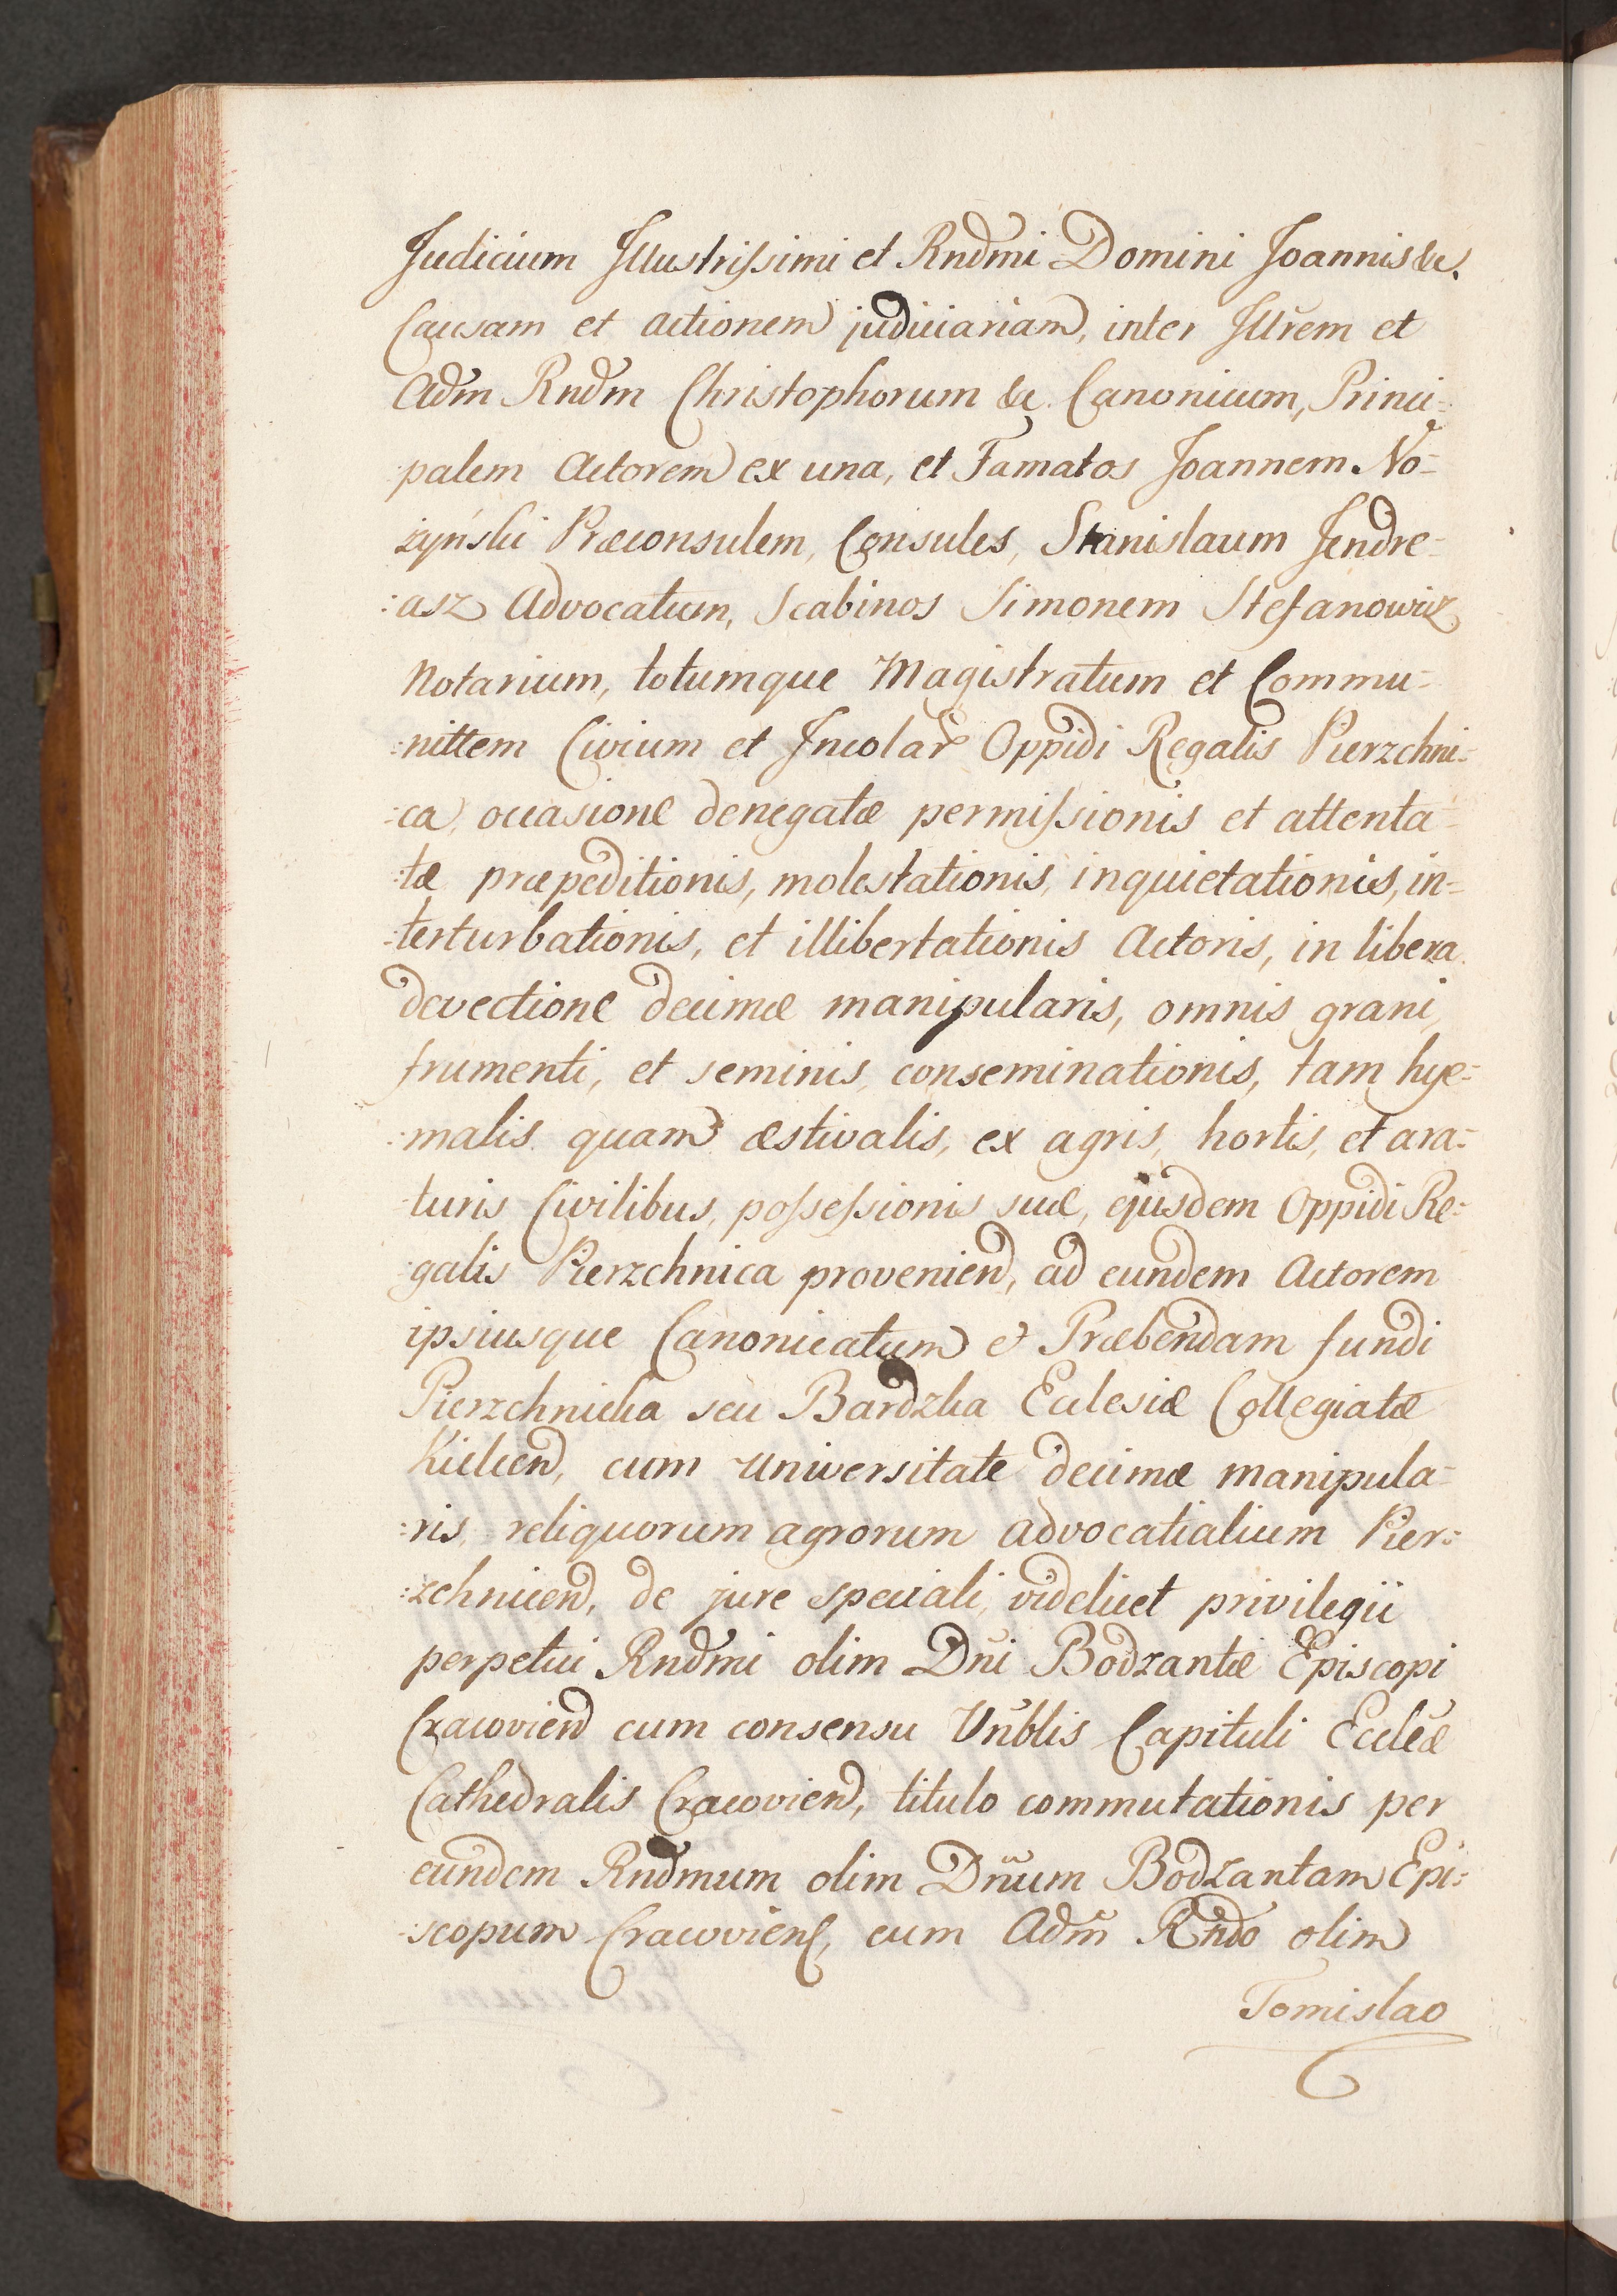 Judicium Illustrissimi et Rndmi Domini Joannis &c.
Causam et actionem judiciariam, inter Illrem et
Adm Rndm Christophorum &c. Canonicum, Princi=
palem Actorem ex una, et Famatos Joannem No=
żyński Præconsulem, Consules, Stanislaum Jendre=
:asz Advocatum, Scabinos Simonem Stefanowicz
Notarium, totumque Magistratum et Commu=
:nittem Civium et Incolar Oppidi Regalis Pierzchni=
:ca, occasione denegatæ permissionis et attenta=
:tæ præpeditionis, molestationis, inquietationis, in=
:terturbationis, et illibertationis Actoris, in libera
devectione decimæ manipularis, omnis grani,
frumenti, et seminis, conseminationis, tam hye=
:malis quam æstivalis, ex agris, hortis, et ara=
:turis Civilibus, possessionis suæ, ejusdem Oppidi Re=
:galis Pierzchnica proveniend, ad eundem Actorem
ipsiusque Canonicatum et Præbendam fundi
Pierzchnicka seu Bardzka Ecclesiæ Collegiatæ
Kielcen, cum universitate decimæ manipula=
:ris, reliquorum agrorum advocatialium Pier=
:zchnicen, de jure speciali, videlicet privilegii
perpetui Rndmi olim Dni Bodzantæ Episcopi
Cracovien cum consensu Vnblis Capituli Eccleæ
Cathedralis Cracovien, titulo commutationis per
eundem Rndmum olim Dnum Bodzantam Epi=
:scopum Cracoviens, cum Adm Rndo olim
Tomislao